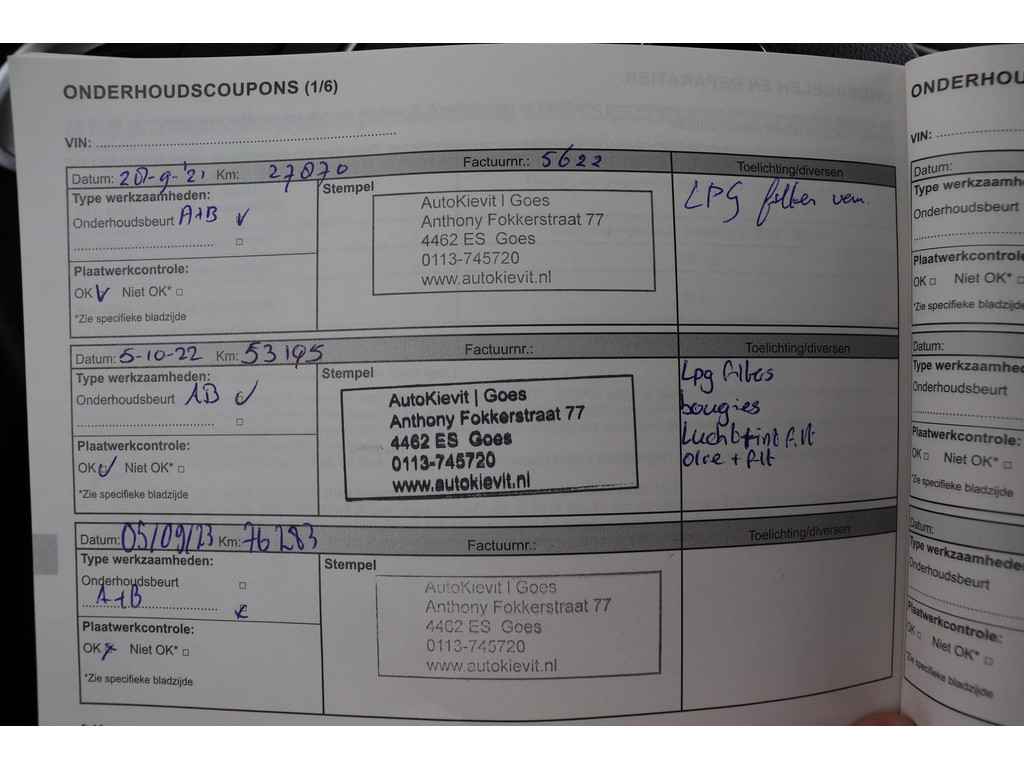 ONDERHOUDSCOUPONS (1/6)
VIN:
Datum: 20-9-'21 Km: 27870 Factuurnr.: 5622 Toelichting/diversen
Type werkzaamheden:
Onderhoudsbeurt A+B
Plaatwerkcontrole:
OK Niet OK*
*Zie specifieke bladzijde
Stempel
AutoKievit | Goes
Anthony Fokkerstraat 77
4462 ES Goes
0113-745720
www.autokievit.nl
LPG filter verv.
Datum: 5-10-22 Km: 53195 Factuurnr.: Toelichting/diversen
Type werkzaamheden:
Onderhoudsbeurt AB
Plaatwerkcontrole:
OK Niet OK*
*Zie specifieke bladzijde
Stempel
AutoKievit | Goes
Anthony Fokkerstraat 77
4462 ES Goes
0113-745720
www.autokievit.nl
Lpg filters
bougies
filt
olie + filt
Datum: 05/09/23 Km: 76283 Factuurnr.: Toelichting/diversen
Type werkzaamheden:
Onderhoudsbeurt
A+B
Plaatwerkcontrole:
OK Niet OK*
*Zie specifieke bladzijde
Stempel
AutoKievit | Goes
Anthony Fokkerstraat 77
4462 ES Goes
0113-745720
www.autokievit.nl
ONDERHOU
VIN:
Datum:
Type werkzaamhede
Onderhoudsbeurt
Plaatwerkcontrole:
OK Niet OK*
*Zie specifieke bladzijde
Datum:
Type werkzaamhede
Onderhoudsbeurt
Plaatwerkcontrole:
OK Niet OK*
*Zie specifieke bladzijde
Datum:
Type werkzaamheden
Onderhoudsbeurt
Plaatwerkcontrole:
OK Niet OK*
*Zie specifieke bladzijde